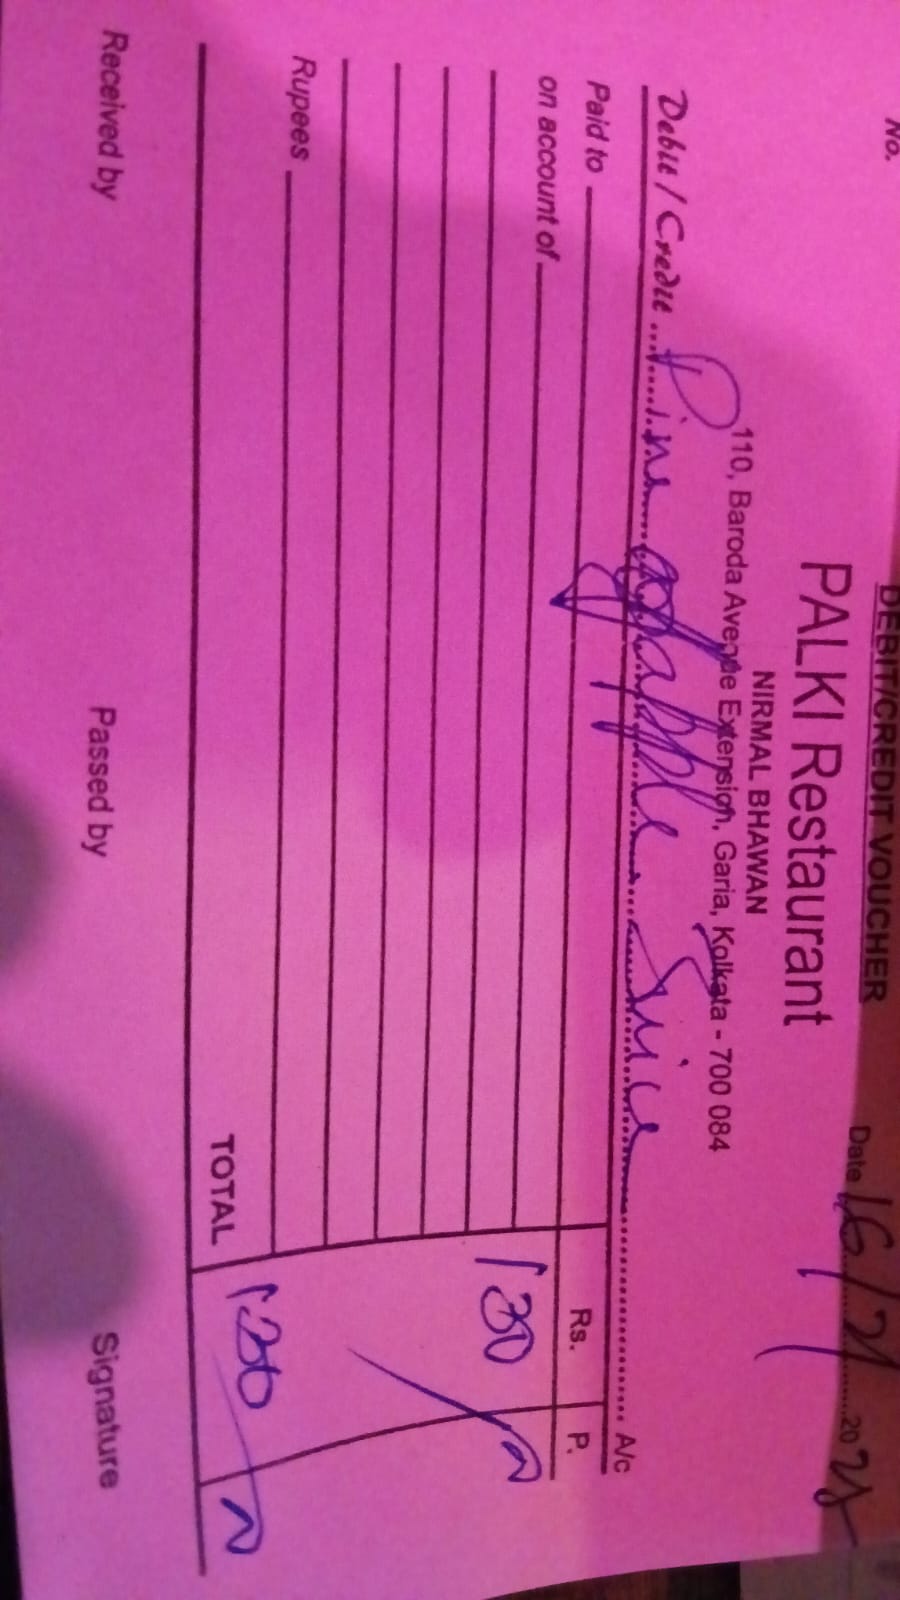 No.
DEBIT/CREDIT VOUCHER
PALKI Restaurant
NIRMAL BHAWAN
110, Baroda Avenue Extension, Garia, Kolkata - 700 084
Date 16/21 20
Debit / Credit Pine apple Juice A/c
Paid to
Rs. P.
on account of
130
Rupees
TOTAL 130
Received by Passed by Signature